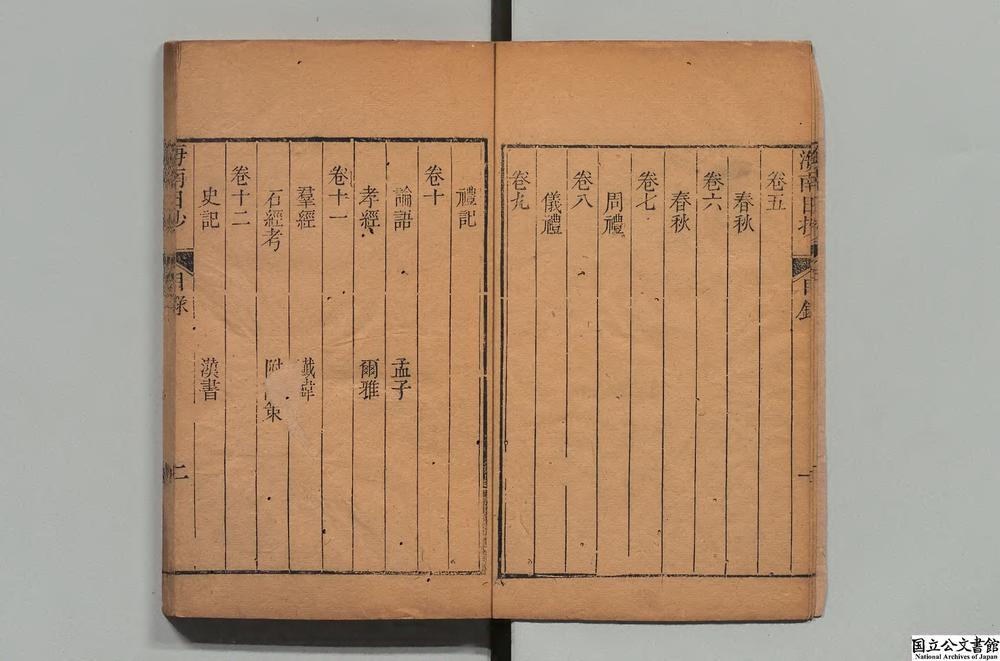 卷五
春秋
卷六
春秋
卷七
周禮
卷八
儀禮
卷九
禮記
卷十
論語 孟子
孝經 爾雅
卷十一
羣經
石經考 附
卷十二
史記 漢書
目錄
二
国立公文書館
National Archives of Japan